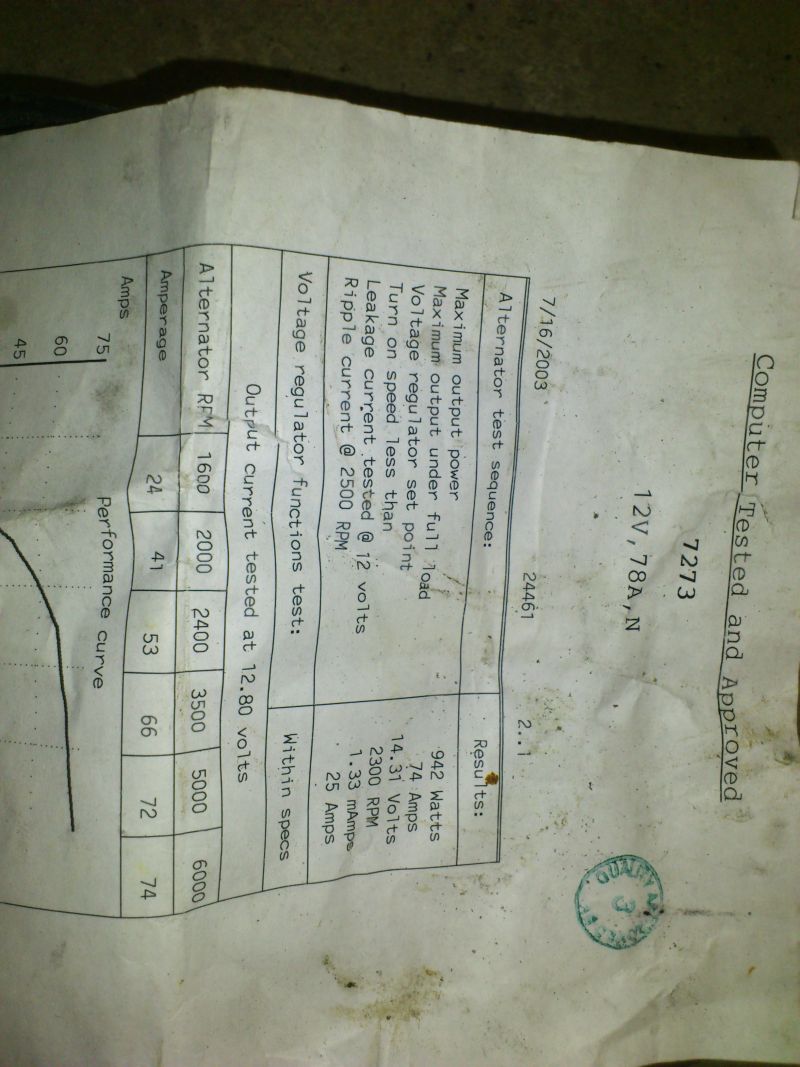 Computer Tested and Approved
7273
12V,78A,N
7/16/2003 24461 2..1
Alternator test sequence: Results:
Maximum output power 942 Watts
Maximum output under full load 74 Amps
Voltage regulator set point 14.31 Volts
Turn on speed less than 2300 RPM
Leakage current tested @ 12 volts 1.33 mAmps
Ripple current @ 2500 RPM 25 Amps
Voltage regulator functions test: Within specs
Output current tested at 12.80 volts
Alternator RPM 1600 2000 2400 3500 5000 6000
Amperage 24 41 53 66 72 74
Amps Performance curve
75
60
45
QUALITY 3